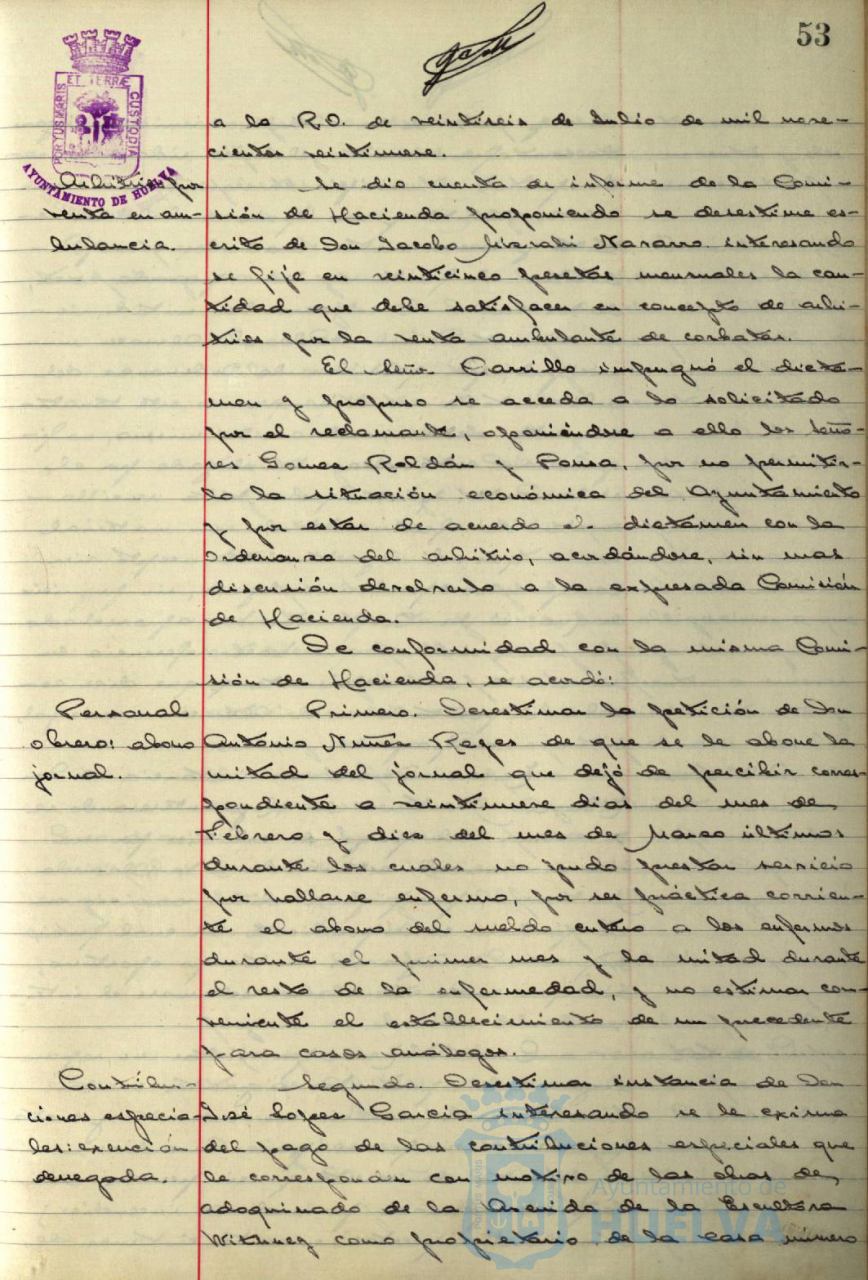 53
ET TERRÆ
POR TUS MARIS
CUSTODIA
AYUNTAMIENTO DE HUELVA
a la R.O. de veintiseis de Julio de mil nove-
cientos veintinueve.
Arbitrio por
venta en am-
bulancia.
Se dio cuenta de informe de la Comi-
sión de Hacienda proponiendo se desestime es-
crito de Don Jacobo Navarro interesando
se fije en veinticinco pesetas mensuales la can-
tidad que debe satisfacer en concepto de arbi-
trios por la venta ambulante de corbatas.
El Señor Carrillo impugnó el dictá-
men y propuso se acceda a lo solicitado
por el reclamante, oponiéndose a ello los Seño-
res Gomez Roldán y Ponsa, por no permitir-
lo la situación económica del Ayuntamiento
y por estar de acuerdo el dictámen con la
Ordenanza del arbitrio, acordándose, sin mas
discusión devolverlo a la expresada Comisión
de Hacienda.
De conformidad con la misma Comi-
sión de Hacienda, se acordó:
Personal
obrero: abono
jornal.
Primero. Desestimar la petición de Don
Antonio Nuñez Reyes de que se le abone la
mitad del jornal que dejó de percibir corres-
pondiente a veintinueve dias del mes de
Febrero y diez del mes de Marzo últimos
durante los cuales no pudo prestar servicio
por hallarse enfermo, por ser práctica corrien-
te el abono del sueldo entero a los enfermos
durante el primer mes y la mitad durante
el resto de la enfermedad, y no estimar con-
veniente el establecimiento de un precedente
para casos análogos.
Contribu-
ciones especia-
les: exención
denegada.
Segundo. Desestimar instancia de Don
José Lopez Garcia interesando se le exima
del pago de las contribuciones especiales que
le corresponden con motivo de las obras de
adoquinado de la Avenida de la Escultora
Withney como propietario de la casa número
Ayuntamiento de
HUELVA